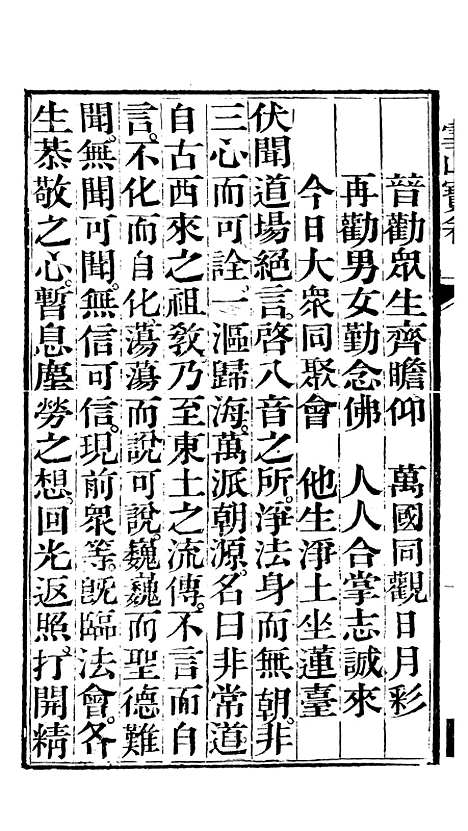 普勸眾生齊瞻仰　萬國同觀日月彩
再勸男女勤念佛　人人合掌志誠來
今日大眾同聚會　他生淨土坐蓮臺
伏聞道場絕言。啓八音之所。淨法身而無朝。非
三心而可詮。一漚歸海。萬派朝源。名曰非常道
自古西來之祖教。乃至東土之流傳。不言而自
言。不化而自化。蕩蕩而說可說。巍巍而聖德難
聞。無聞可聞。無信可信。現前眾等。旣臨法會。各
生恭敬之心。暫息塵勞之想。回光返照。打開精